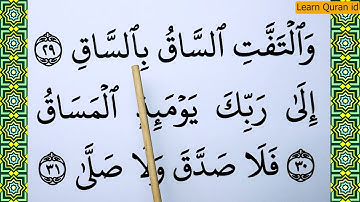 Learn Quran id
وَٱلۡتَفَّتِ ٱلسَّاقُ بِٱلسَّاقِ ٢٩
إِلَىٰ رَبِّكَ يَوۡمَئِذٍ ٱلۡمَسَاقُ
٣٠ فَلَا صَدَّقَ وَلَا صَلَّىٰ ٣١